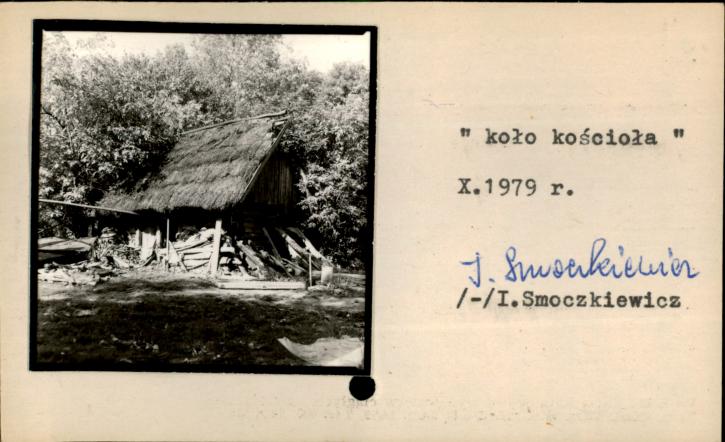 " koło kościoła "
X.1979 r.
I. Smoczkiewicz
/-/I.Smoczkiewicz